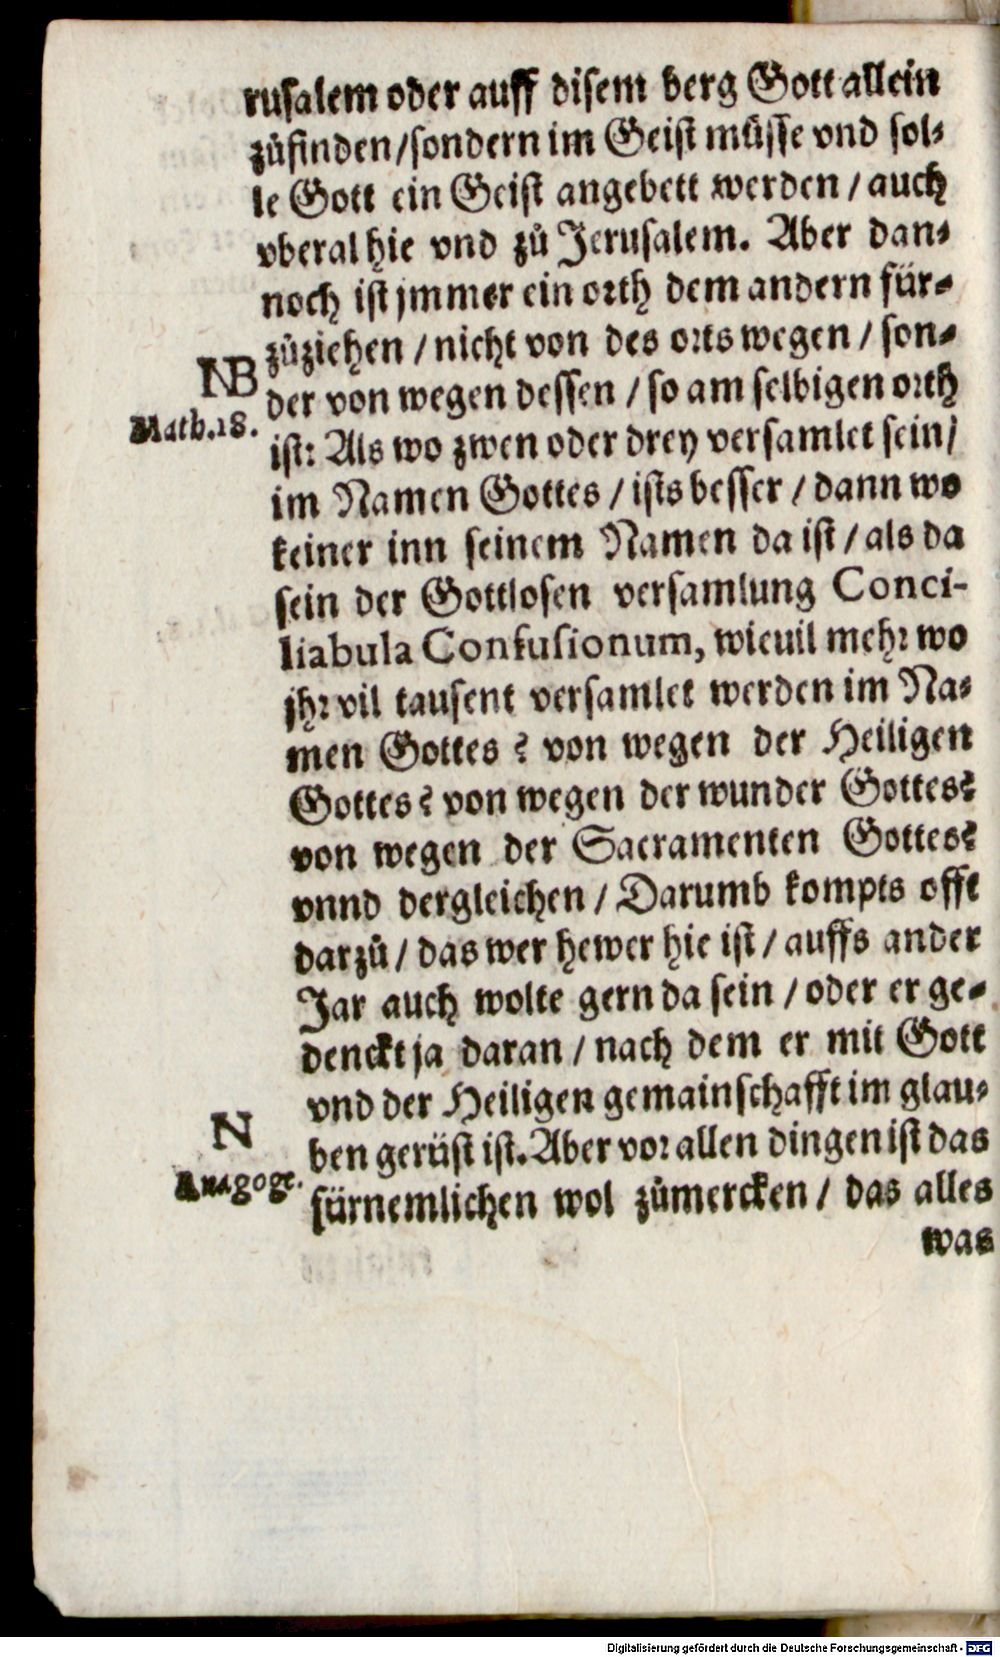 rusalem oder auff disem berg Gott allein
zůfinden / sondern im Geist můsse vnd sol⸗
le Gott ein Geist angebett werden / auch
vberal hie vnd zů Jerusalem. Aber dan⸗
noch ist jmmer ein orth dem andern für⸗
zůziehen / nicht von des orts wegen / son⸗
NB
der von wegen dessen / so am selbigen orth
Math. 18.
ist: Als wo zwen oder drey versamlet sein /
im Namen Gottes / ists besser / dann wo
keiner inn seinem Namen da ist / als da
sein der Gottlosen versamlung Conci-
liabula Confusionum, wieuil mehr wo
jhr vil tausent versamlet werden im Na⸗
men Gottes? von wegen der Heiligen
Gottes? von wegen der wunder Gottes?
von wegen der Sacramenten Gottes?
vnnd dergleichen / Darumb kompts offt
darzů / das wer hewer hie ist / auffs ander
Jar auch wolte gern da sein / oder er ge⸗
denckt ja daran / nach dem er mit Gott
vnd der Heiligen gemainschafft im glau⸗
N
ben gerüst ist. Aber vor allen dingen ist das
Anagoge.
fürnemlichen wol zůmercken / das alles
was
Digitalisierung gefördert durch die Deutsche Forschungsgemeinschaft - DFG